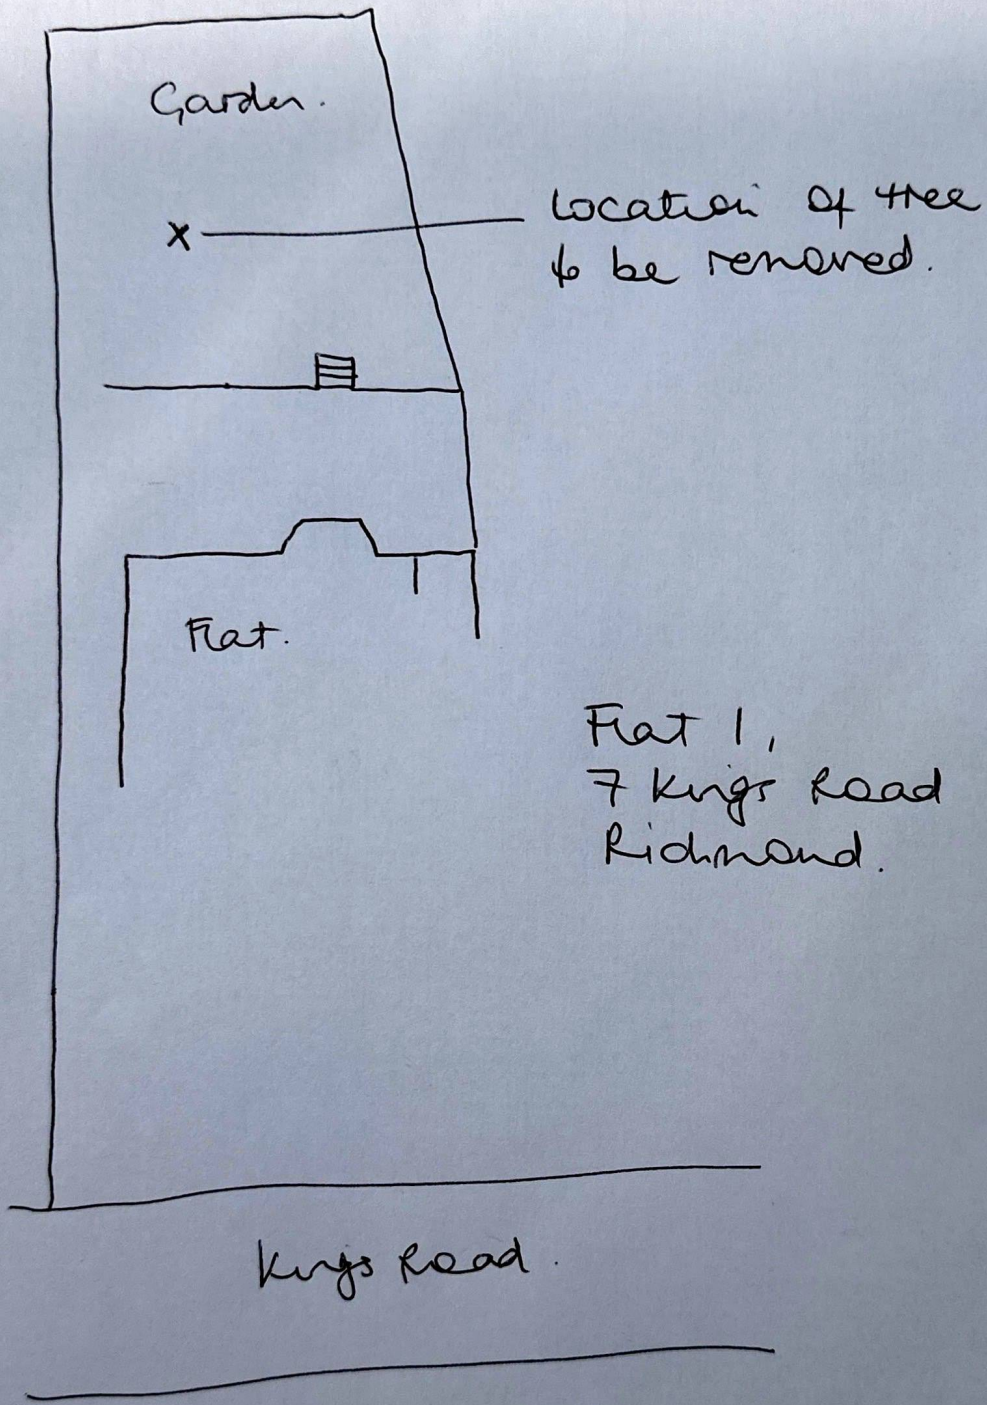 Garden.
Location of tree
to be removed.
Flat.
Flat 1,
7 Kings Road
Richmond.
Kings Road.